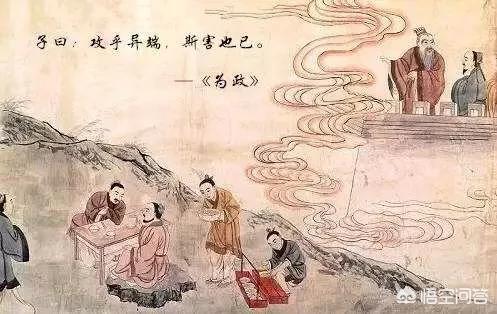 子曰：攻乎异端，斯害也已。
——《为政》
悟空问答